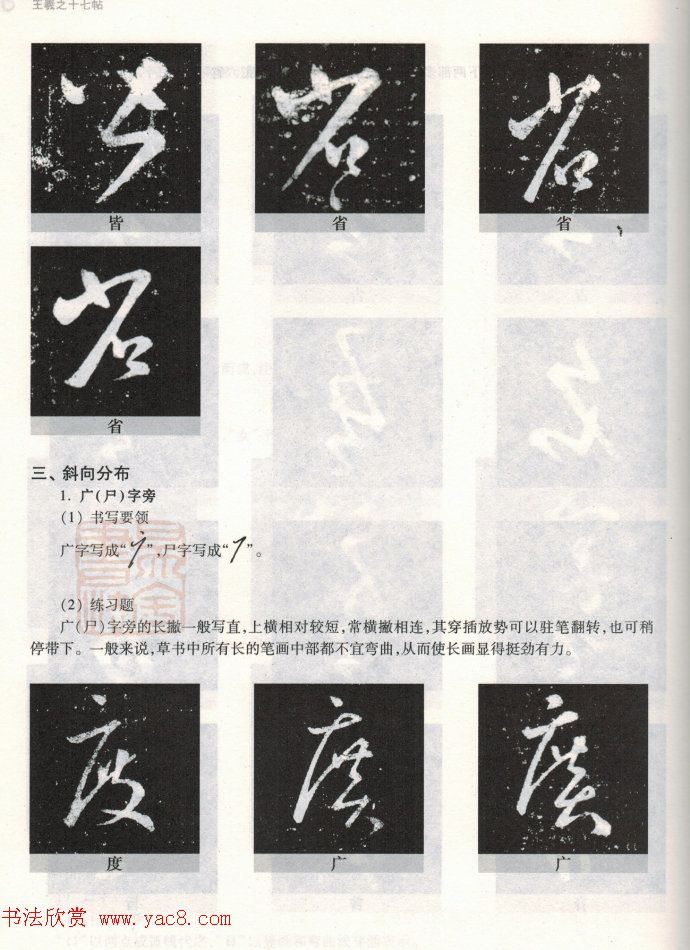 王羲之十七帖
皆
省
省
省
三、斜向分布
1. 广(尸)字旁
(1) 书写要领
广字写成“ ”,尸字写成“ ”。
(2) 练习题
广(尸)字旁的长撇一般写直,上横相对较短,常横撇相连,其穿插放势可以驻笔翻转,也可稍
停带下。一般来说,草书中所有长的笔画中部都不宜弯曲,从而使长画显得挺劲有力。
度
广
广
书法欣赏 www.yac8.com